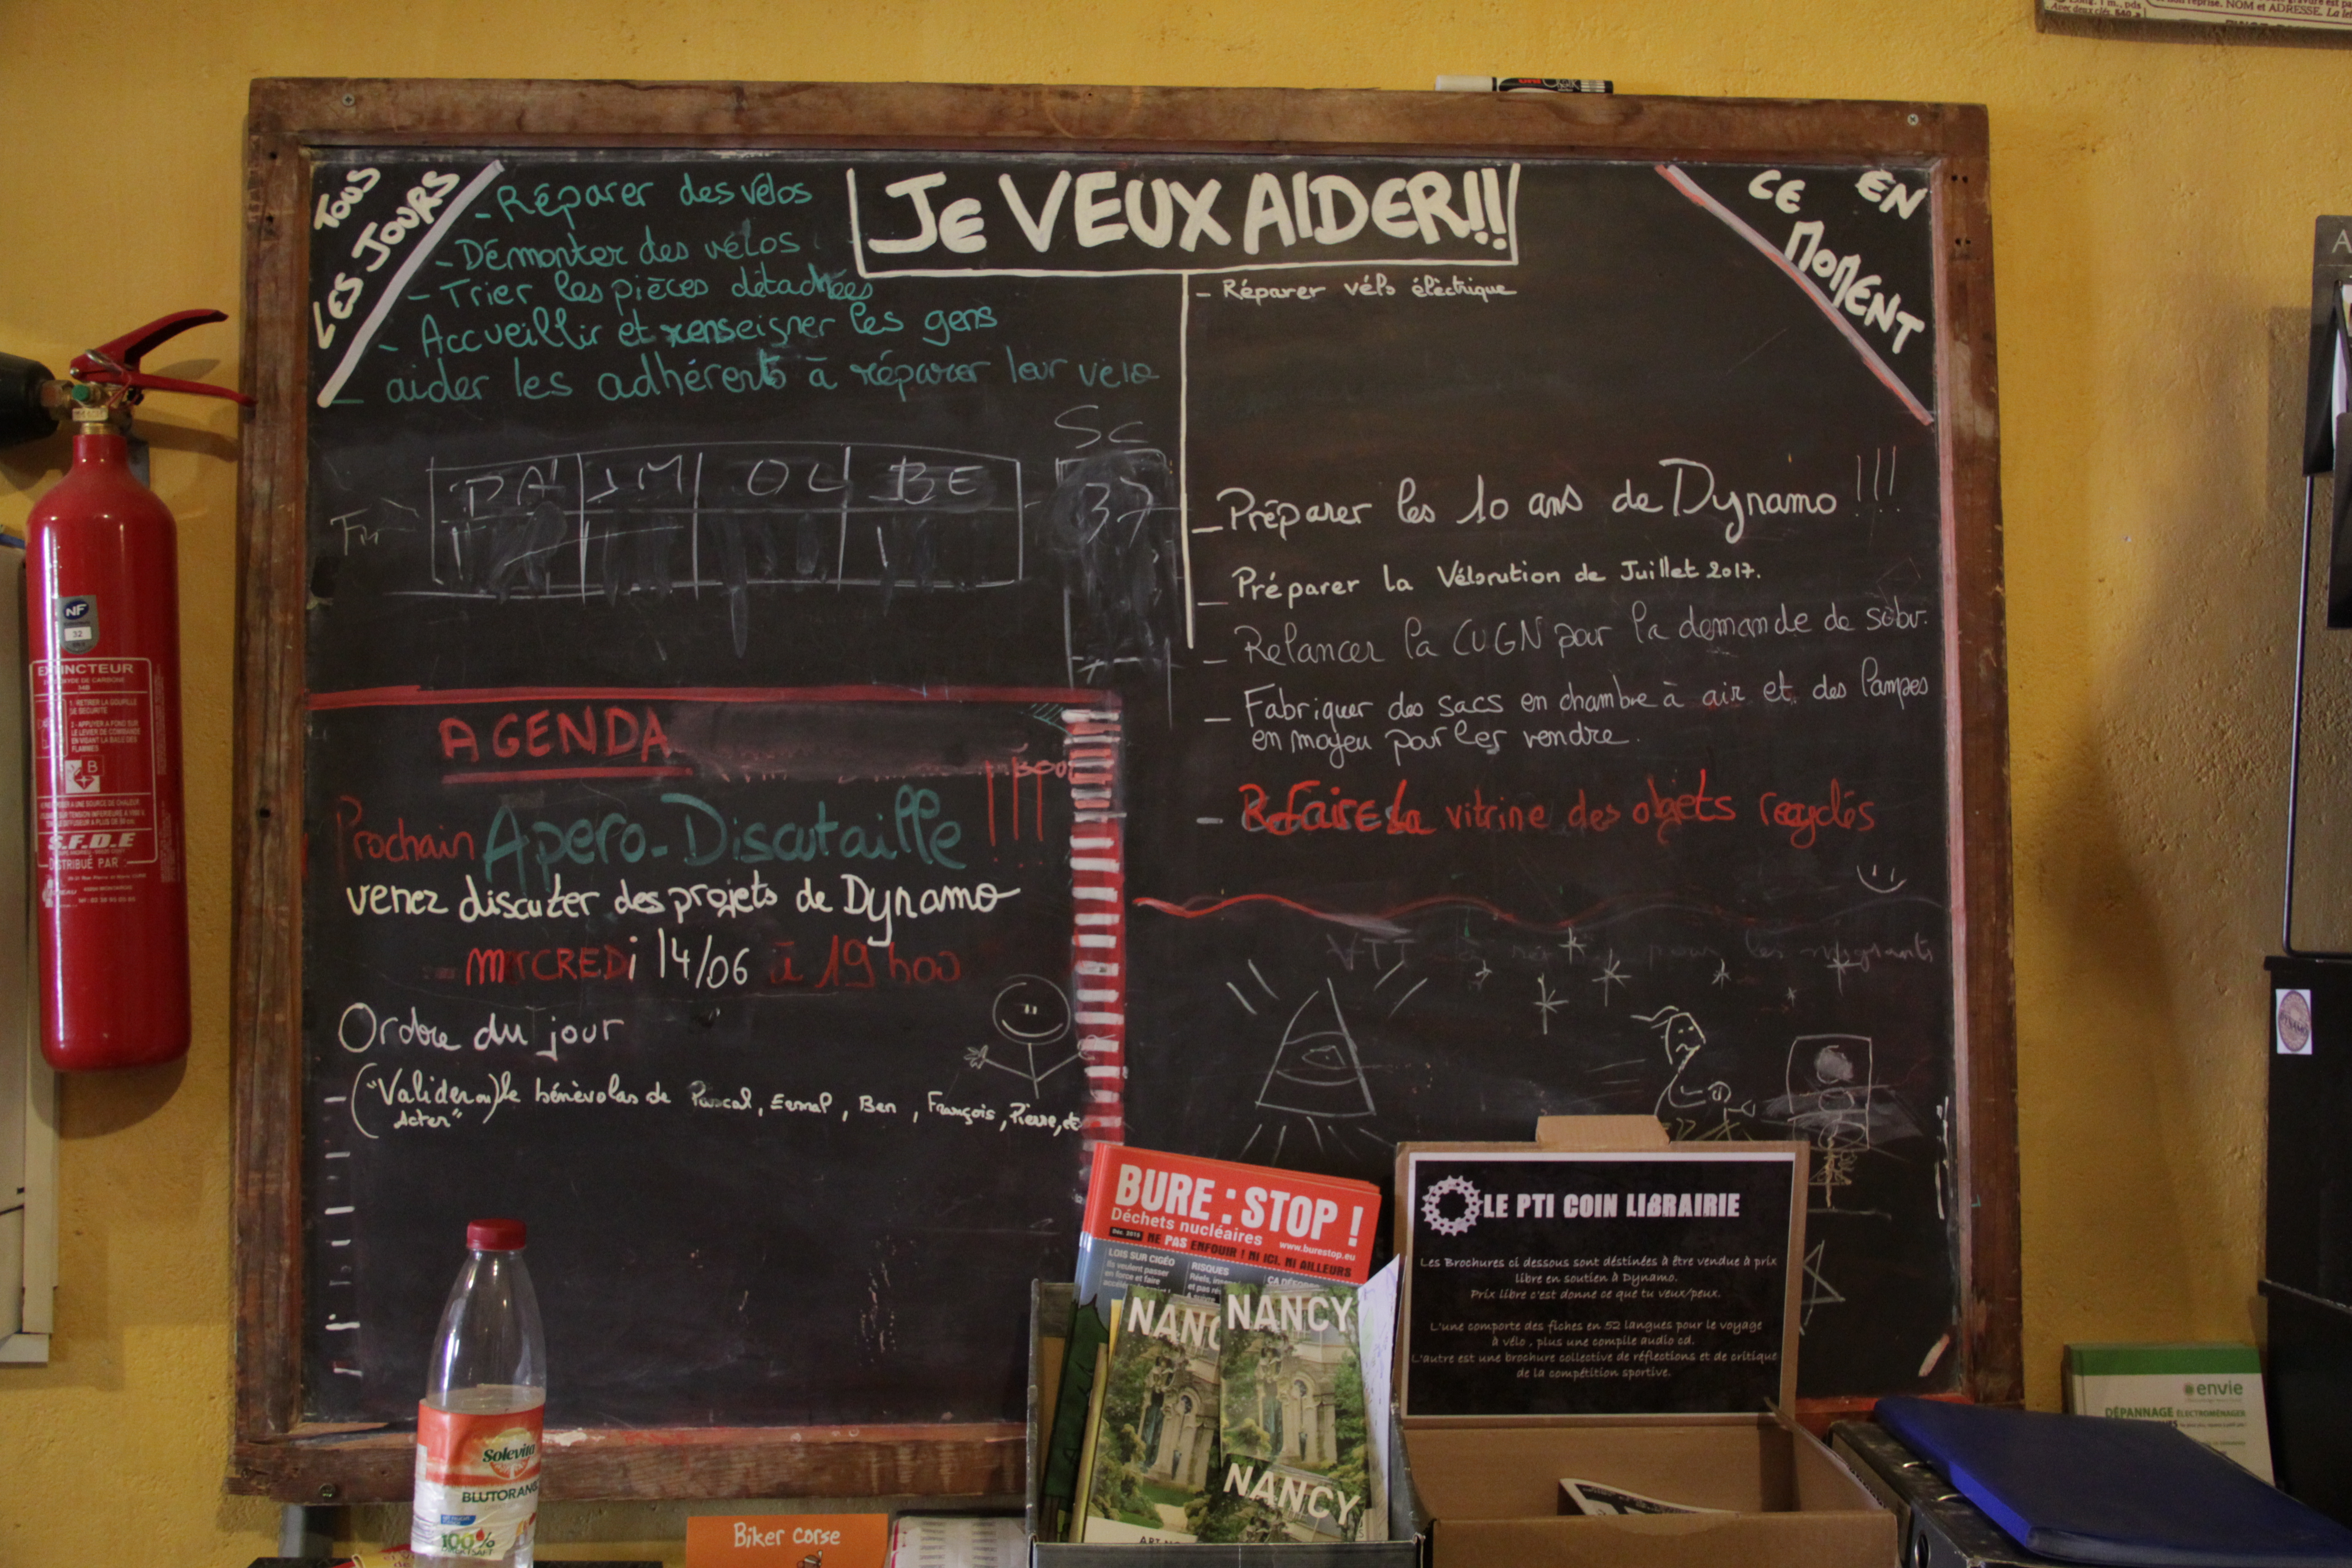 TOUS
LES JOURS
- Réparer des vélos
- Démonter des vélos
- Trier les pièces détachées
- Accueillir et renseigner les gens
_ aider les adhérents à réparer leur vélo
JE VEUX AIDER!!
EN
CE
MOMENT
- Réparer vélo électrique
_ Préparer les 10 ans de Dynamo !!!
_ Préparer la Vélorution de Juillet 2017.
_ Relancer la CUGN pour la demande de subv.
_ Fabriquer des sacs en chambre à air et des lampes
en moyeu pour les vendre.
- Refaire la vitrine des objets recyclés
VTT
pour les migrants
SC
PA JM OL BE
37
AGENDA
Prochain Apero-Discutaille !!!
venez discuter des projets de Dynamo
MERCREDi 14/06 à 19h00
Ordre du jour
("Valider ou) le bénévolas de Pascal, , Ben , François, Pierre, etc
Acter"
NF
32
EXTINCTEUR
1 - RETIRER LA GOUPILLE
DE SECURITE
2 - APPUYER A FOND SUR
LE LEVIER DE COMMANDE
EN VISANT LA BASE DES
FLAMMES
B
S.F.D.E
DISTRIBUÉ PAR
BURE : STOP !
Déchets nucléaires
www.burestop.eu
NE PAS ENFOUIR ! NI ICI, NI AILLEURS
LOIS SUR CIGÉO
Ils veulent passer
en force et faire
RISQUES
NANCY
NANCY
LE PTI COIN LIBRAIRIE
Les Brochures ci dessous sont déstinées à être vendue à prix
libre en soutien à Dynamo.
Prix libre c'est donne ce que tu veux/peux.
L'une comporte des fiches en 52 langues pour le voyage
à vélo , plus une compile audio cd.
L'autre est une brochure collective de réflections et de critique
de la compétition sportive.
Solevita
BLUTORANGE
100%
Biker corse
envie
DÉPANNAGE ÉLECTROMÉNAGER
NOM et ADRESSE.